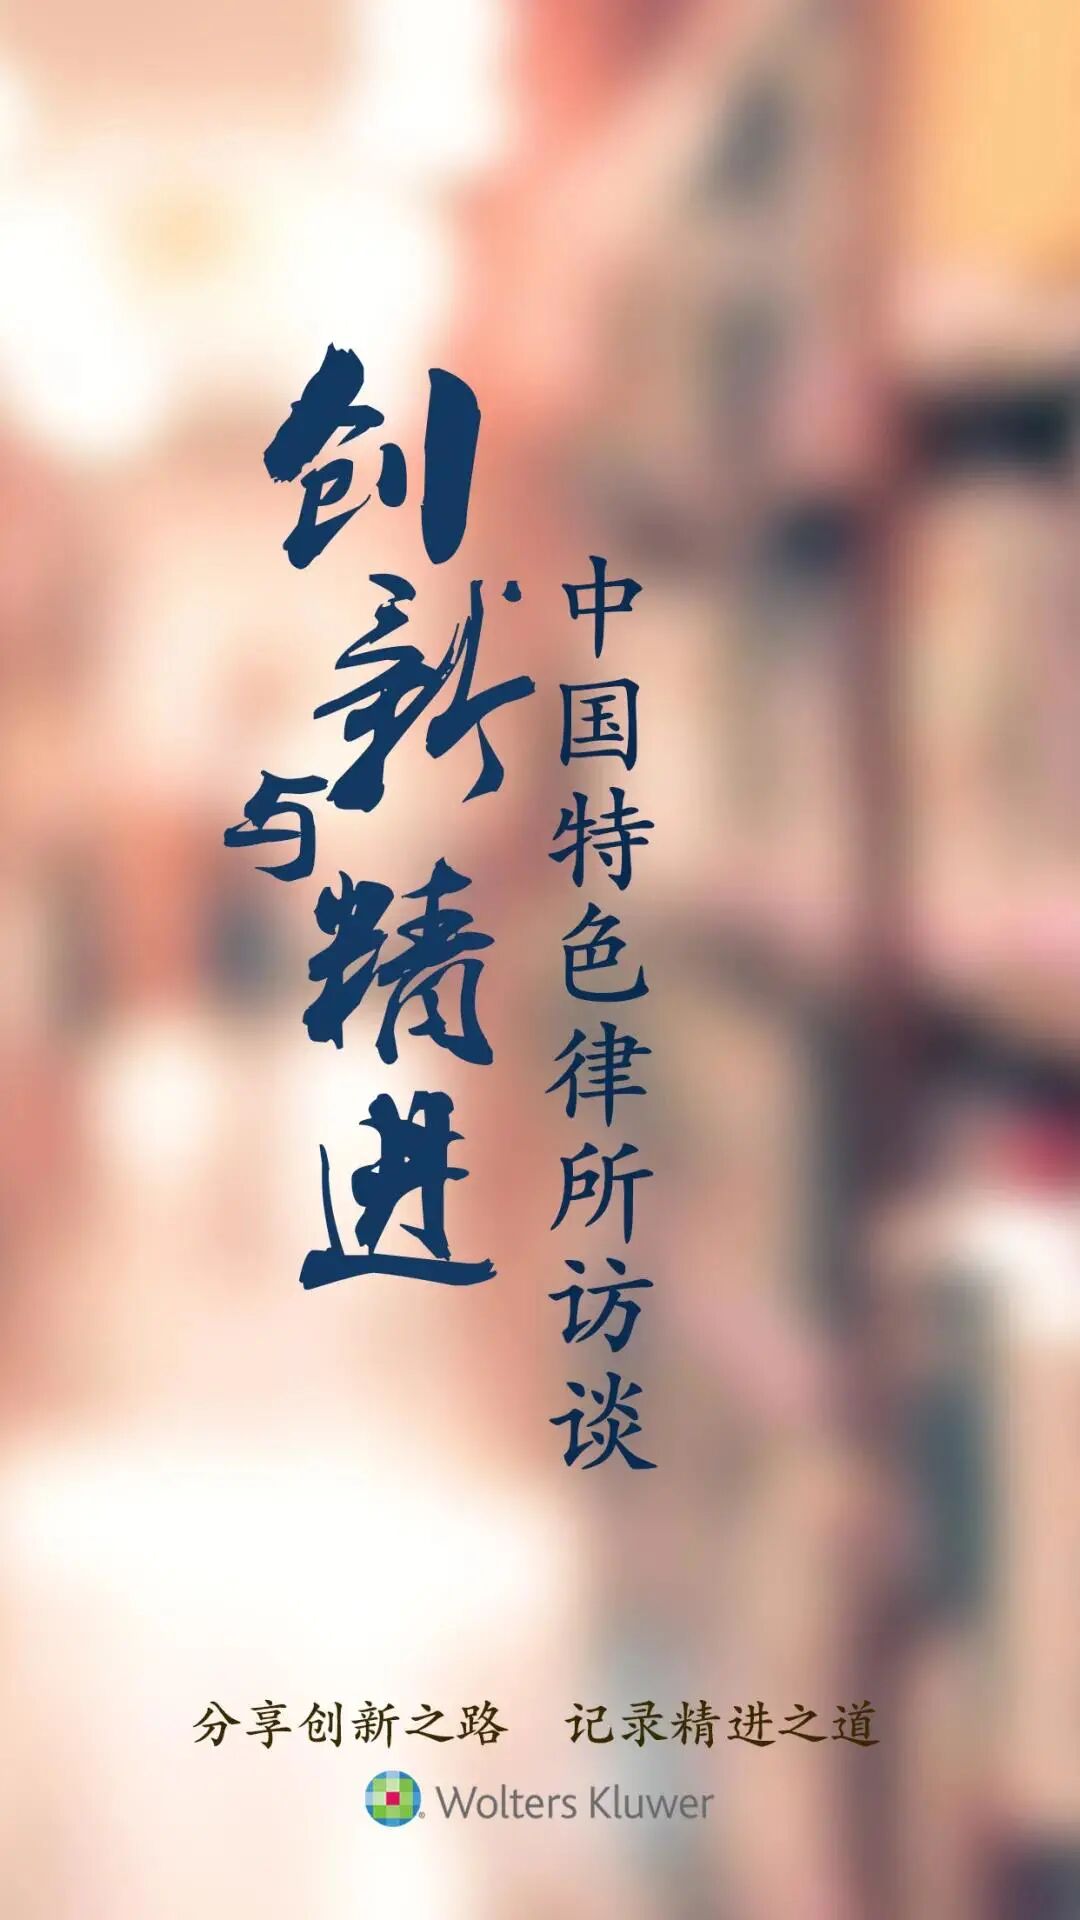 创新与精进
中国特色律所访谈
分享创新之路 记录精进之道
Wolters Kluwer